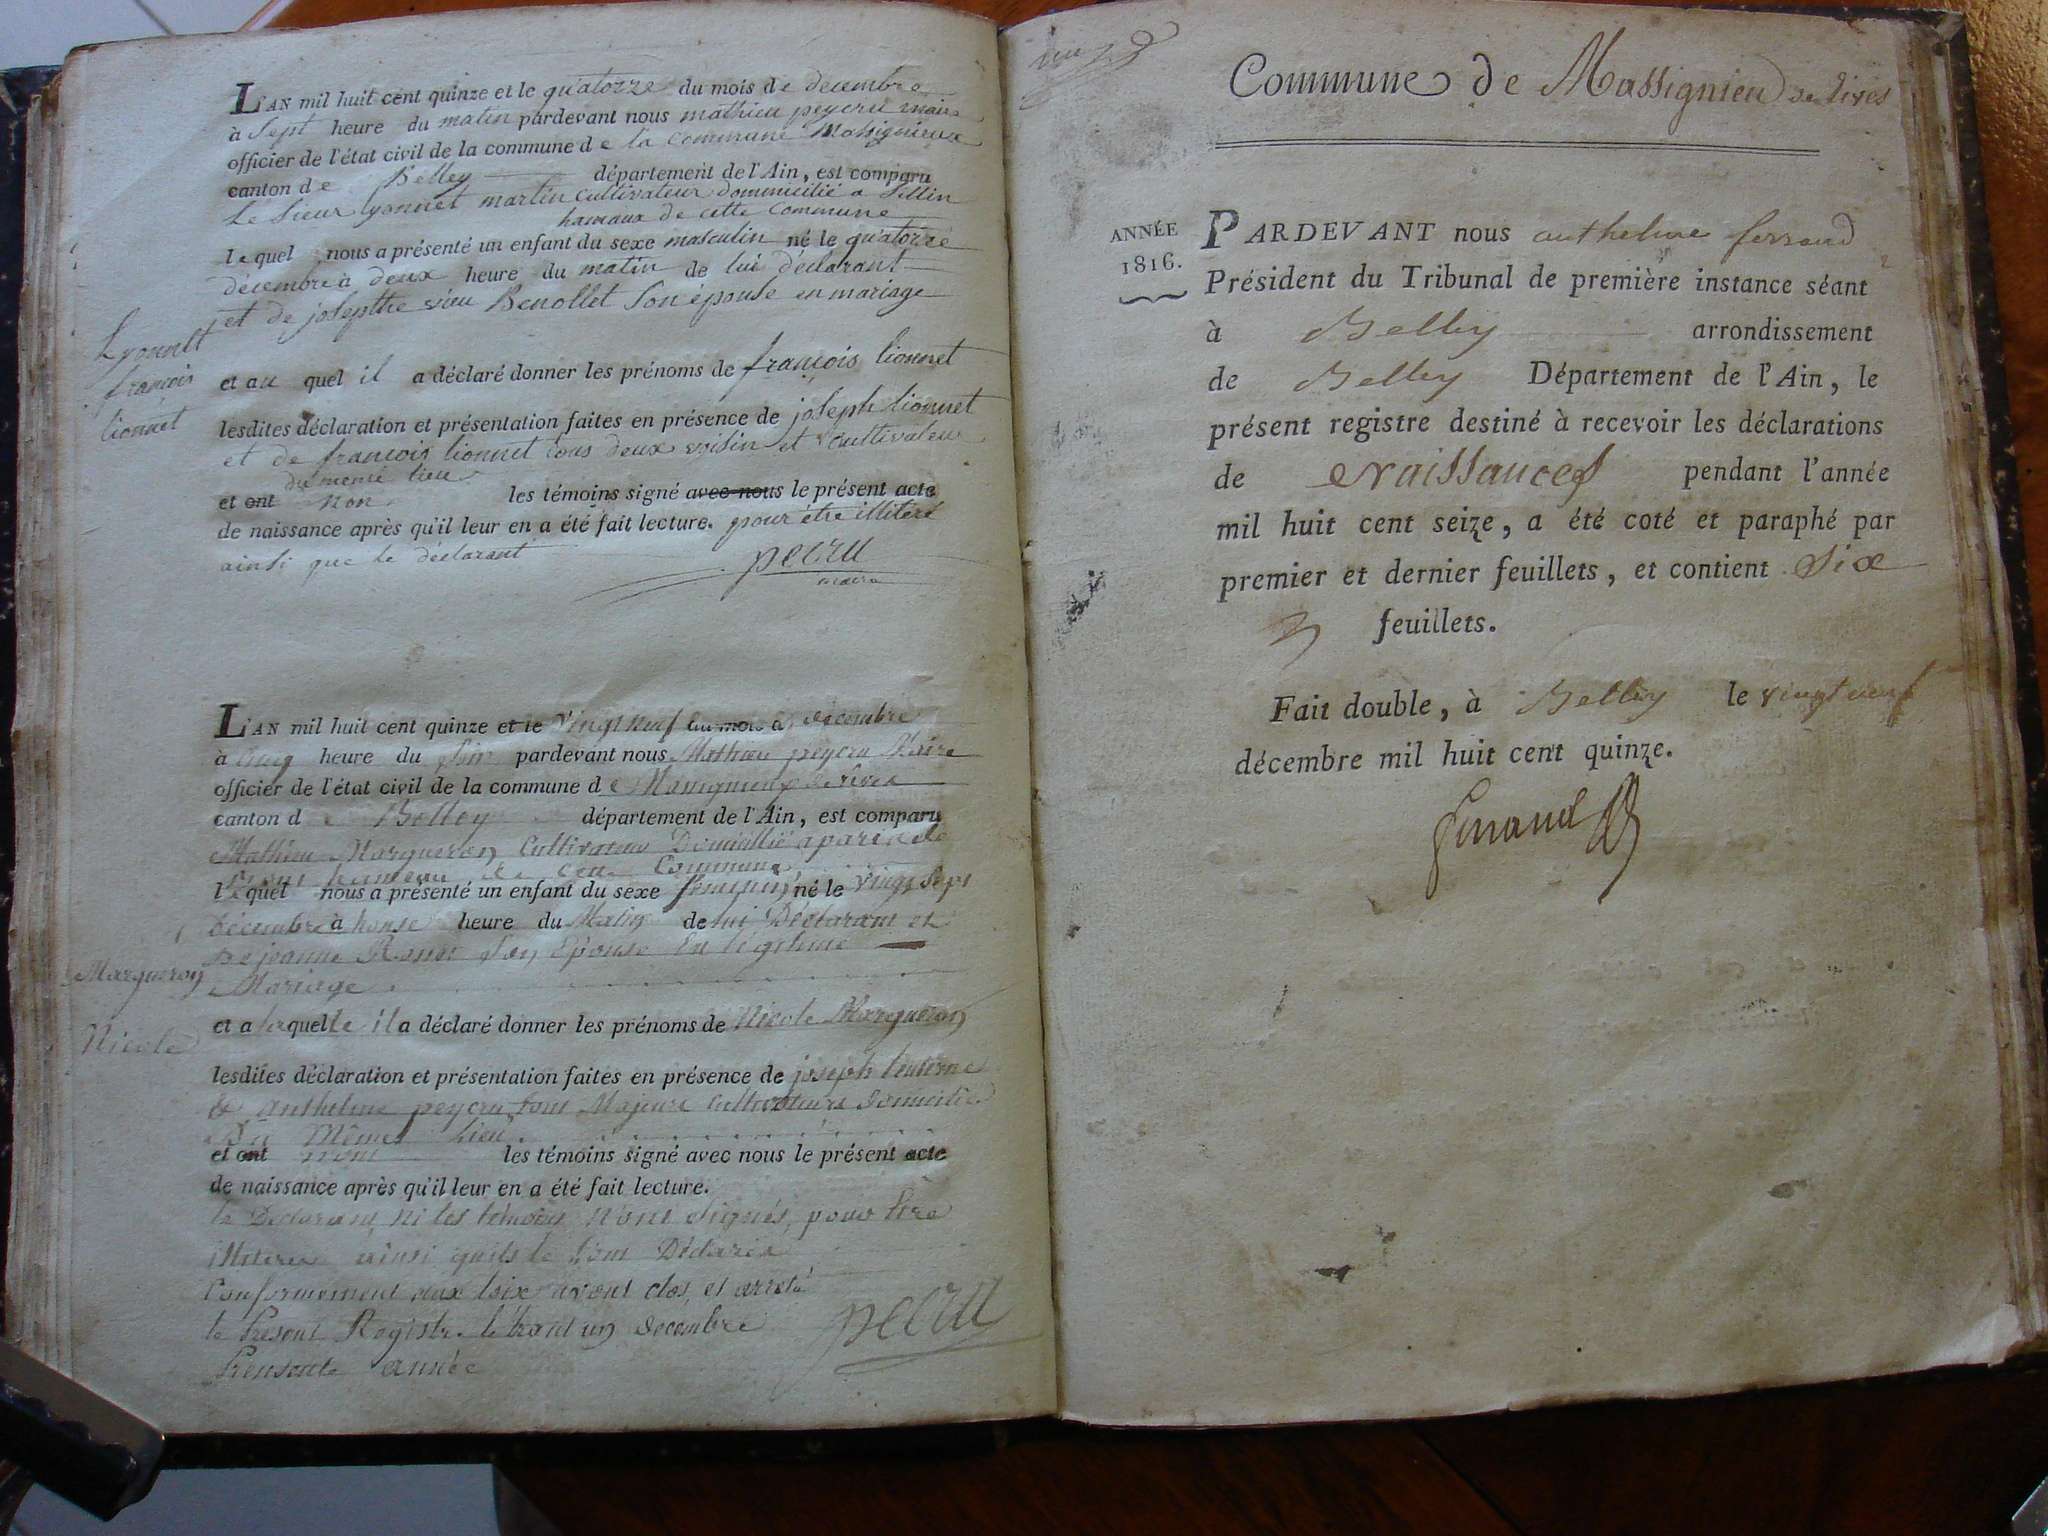 L'AN mil huit cent quinze et le quatorze du mois de decembre
à sept heure du matin pardevant nous mathieu peycru maire
officier de l'état civil de la commune de la commune Massignieux
canton de Belley département de l'Ain, est comparu
Le Sieur lyonnet martin cultivateur dommicilié a Sillin
hamaux de cette commune
lequel nous a présenté un enfant du sexe masculin né le quatorze
décembre à deux heure du matin de lui déclarant
et de josepthe vieu Benollet son épouse en mariage
Lyonnet
françois
lionnet
et au quel il a déclaré donner les prénoms de françois lionnet
lesdites déclaration et présentation faites en présence de joseph lionnet
et de françois lionnet tous deux voisin et cultivateur
du meme lieu
et ont non les témoins signé avec nous le présent acte
de naissance après qu'il leur en a été fait lecture. pour être illiteré
ainsi que le déclarant
pecru
maire
L'AN mil huit cent quinze et le vingt neuf du mois de décembre
à cinq heure du soir pardevant nous Mathieu peycru Maire
officier de l'état civil de la commune de Massignieux de rives
canton de Belley département de l'Ain, est comparu
Mathieu Margueron Cultivateur Domicillié a
hameau de cette Commune
lequel nous a présenté un enfant du sexe féminin né le vingt sept
décembre à honse heure du Matin de lui Déclarant et
De jeanne son Epouse En légitime
Mariage
Margueron
Nicole
et a laquelle il a déclaré donner les prénoms de Nicole Margueron
lesdites déclaration et présentation faites en présence de joseph
& Anthelme peycru tous Majeurs Cultivateurs Domicilié
Du Même Lieu
et ont non les témoins signé avec nous le présent acte
de naissance après qu'il leur en a été fait lecture.
le Déclarant Ni les témoins N'ont signés, pour être
illiteré ainsi quils le sont Déclarés
Conformément aux loix avont clos, et arreté
le Présent Registre le trant un décembre
Prensente année
pecru
Commune de Massignieu de rives
ANNÉE
1816.
PARDEVANT nous anthelme ferrand
Président du Tribunal de première instance séant
à Belley arrondissement
de Belley Département de l'Ain, le
présent registre destiné à recevoir les déclarations
de Naissances pendant l'année
mil huit cent seize, a été coté et paraphé par
premier et dernier feuillets, et contient Six
feuillets.
Fait double, à Belley le vingt neuf
décembre mil huit cent quinze.
ferrand